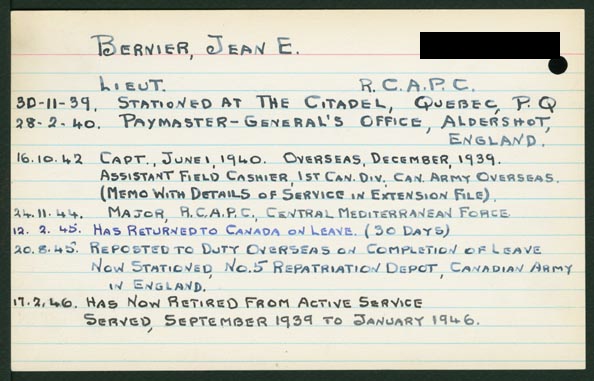 BERNIER, JEAN E.
LIEUT. R.C.A.P.C.
30-11-39. STATIONED AT THE CITADEL, QUEBEC, P.Q
28-2-40. PAYMASTER-GENERAL'S OFFICE, ALDERSHOT,
ENGLAND.
16.10.42 CAPT., JUNE 1, 1940. OVERSEAS, DECEMBER, 1939.
ASSISTANT FIELD CASHIER, 1ST CAN. DIV. CAN. ARMY OVERSEAS.
(MEMO WITH DETAILS OF SERVICE IN EXTENSION FILE).
24.11.44. MAJOR, R.C.A.P.C., CENTRAL MEDITERRANEAN FORCE
12. 2. 45. HAS RETURNED TO CANADA ON LEAVE. (30 DAYS)
20.8.45. REPOSTED TO DUTY OVERSEAS ON COMPLETION OF LEAVE
NOW STATIONED, NO.5 REPATRIATION DEPOT, CANADIAN ARMY
IN ENGLAND.
17.2.46. HAS NOW RETIRED FROM ACTIVE SERVICE
SERVED, SEPTEMBER 1939 TO JANUARY 1946.